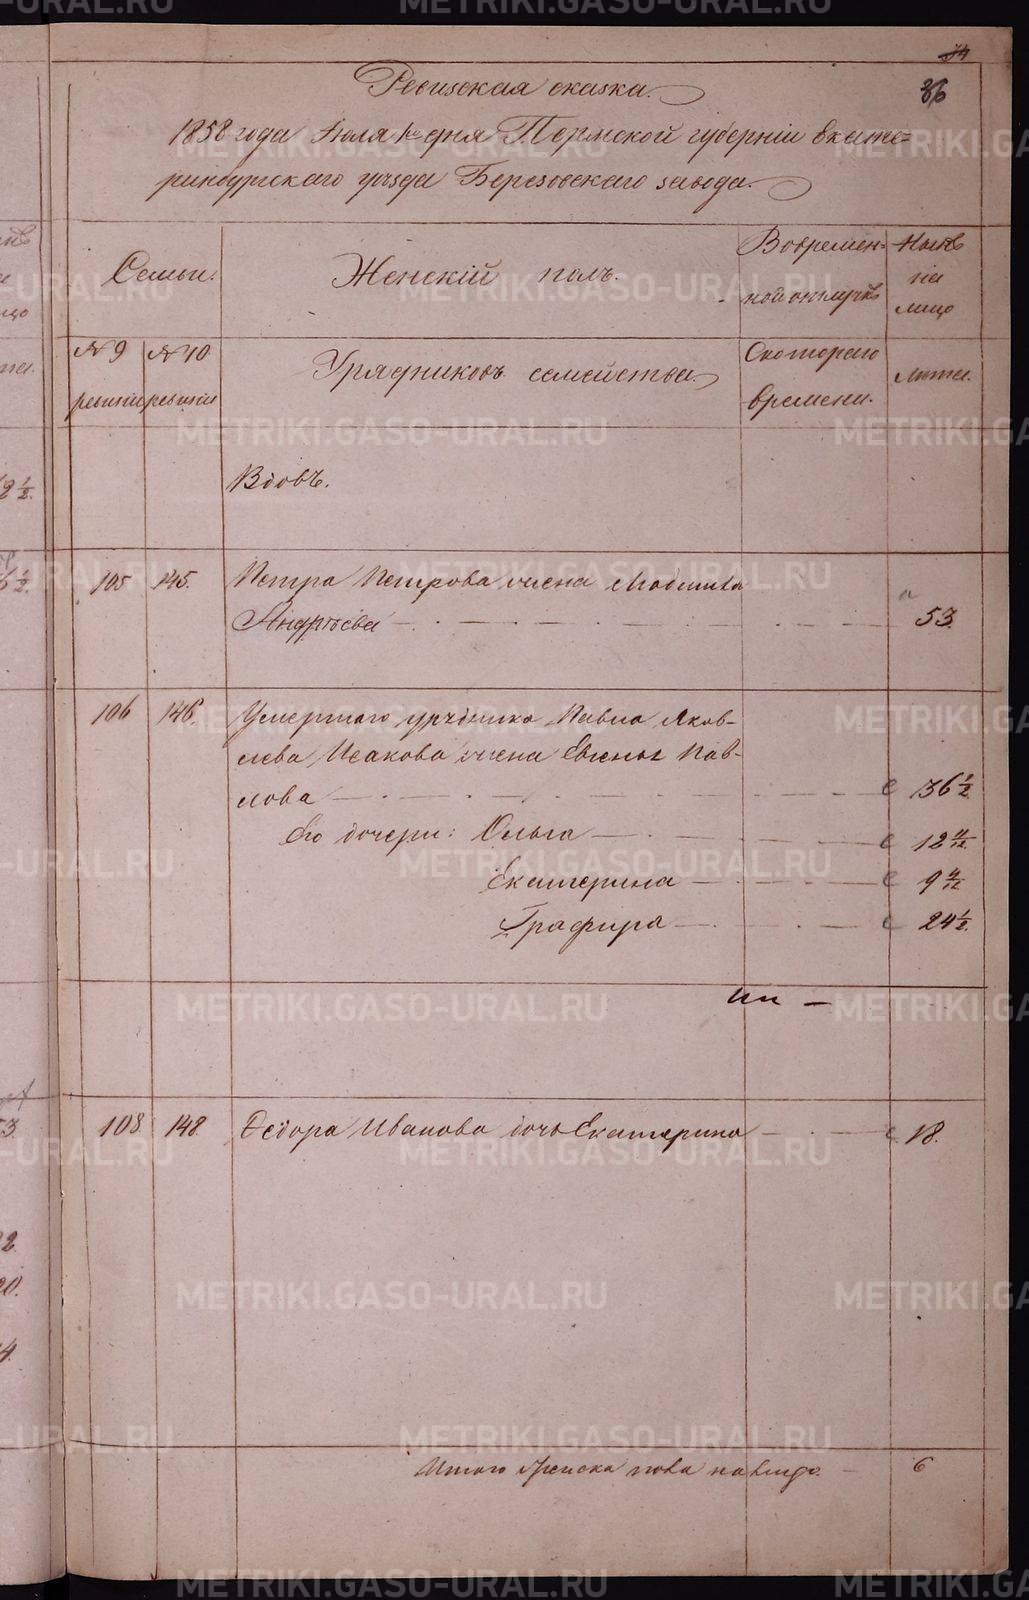 34
36
Ревизская сказка.
1858 года Июля 1го дня Пермской губерніи Екате-
ринбургскаго уѣзда Березовскаго завода.
Семьи.
Женскій полъ.
Вовремен-
ной отлучкѣ
Нынѣ
на
лицо
№ 9
ревизіи
№ 10
ревизіи
Урядниковъ семейства.
Скотораго
времени.
лѣта.
Вдовъ.
105 145. Петра Петрова жена
Андрѣева — 53.
106 146. Умершаго урядника Павла Яков-
лева Исакова жена Евгенья Пав-
лова — 36 1/2
Его дочери: Ольга — 12 11/12
Екатерина — 9 4/12
Графира — 24 1/2
108 148. Федора Иванова дочь Екатерина — 18.
Итого женска пола налицо — 6
METRIKI.GASO-URAL.RU